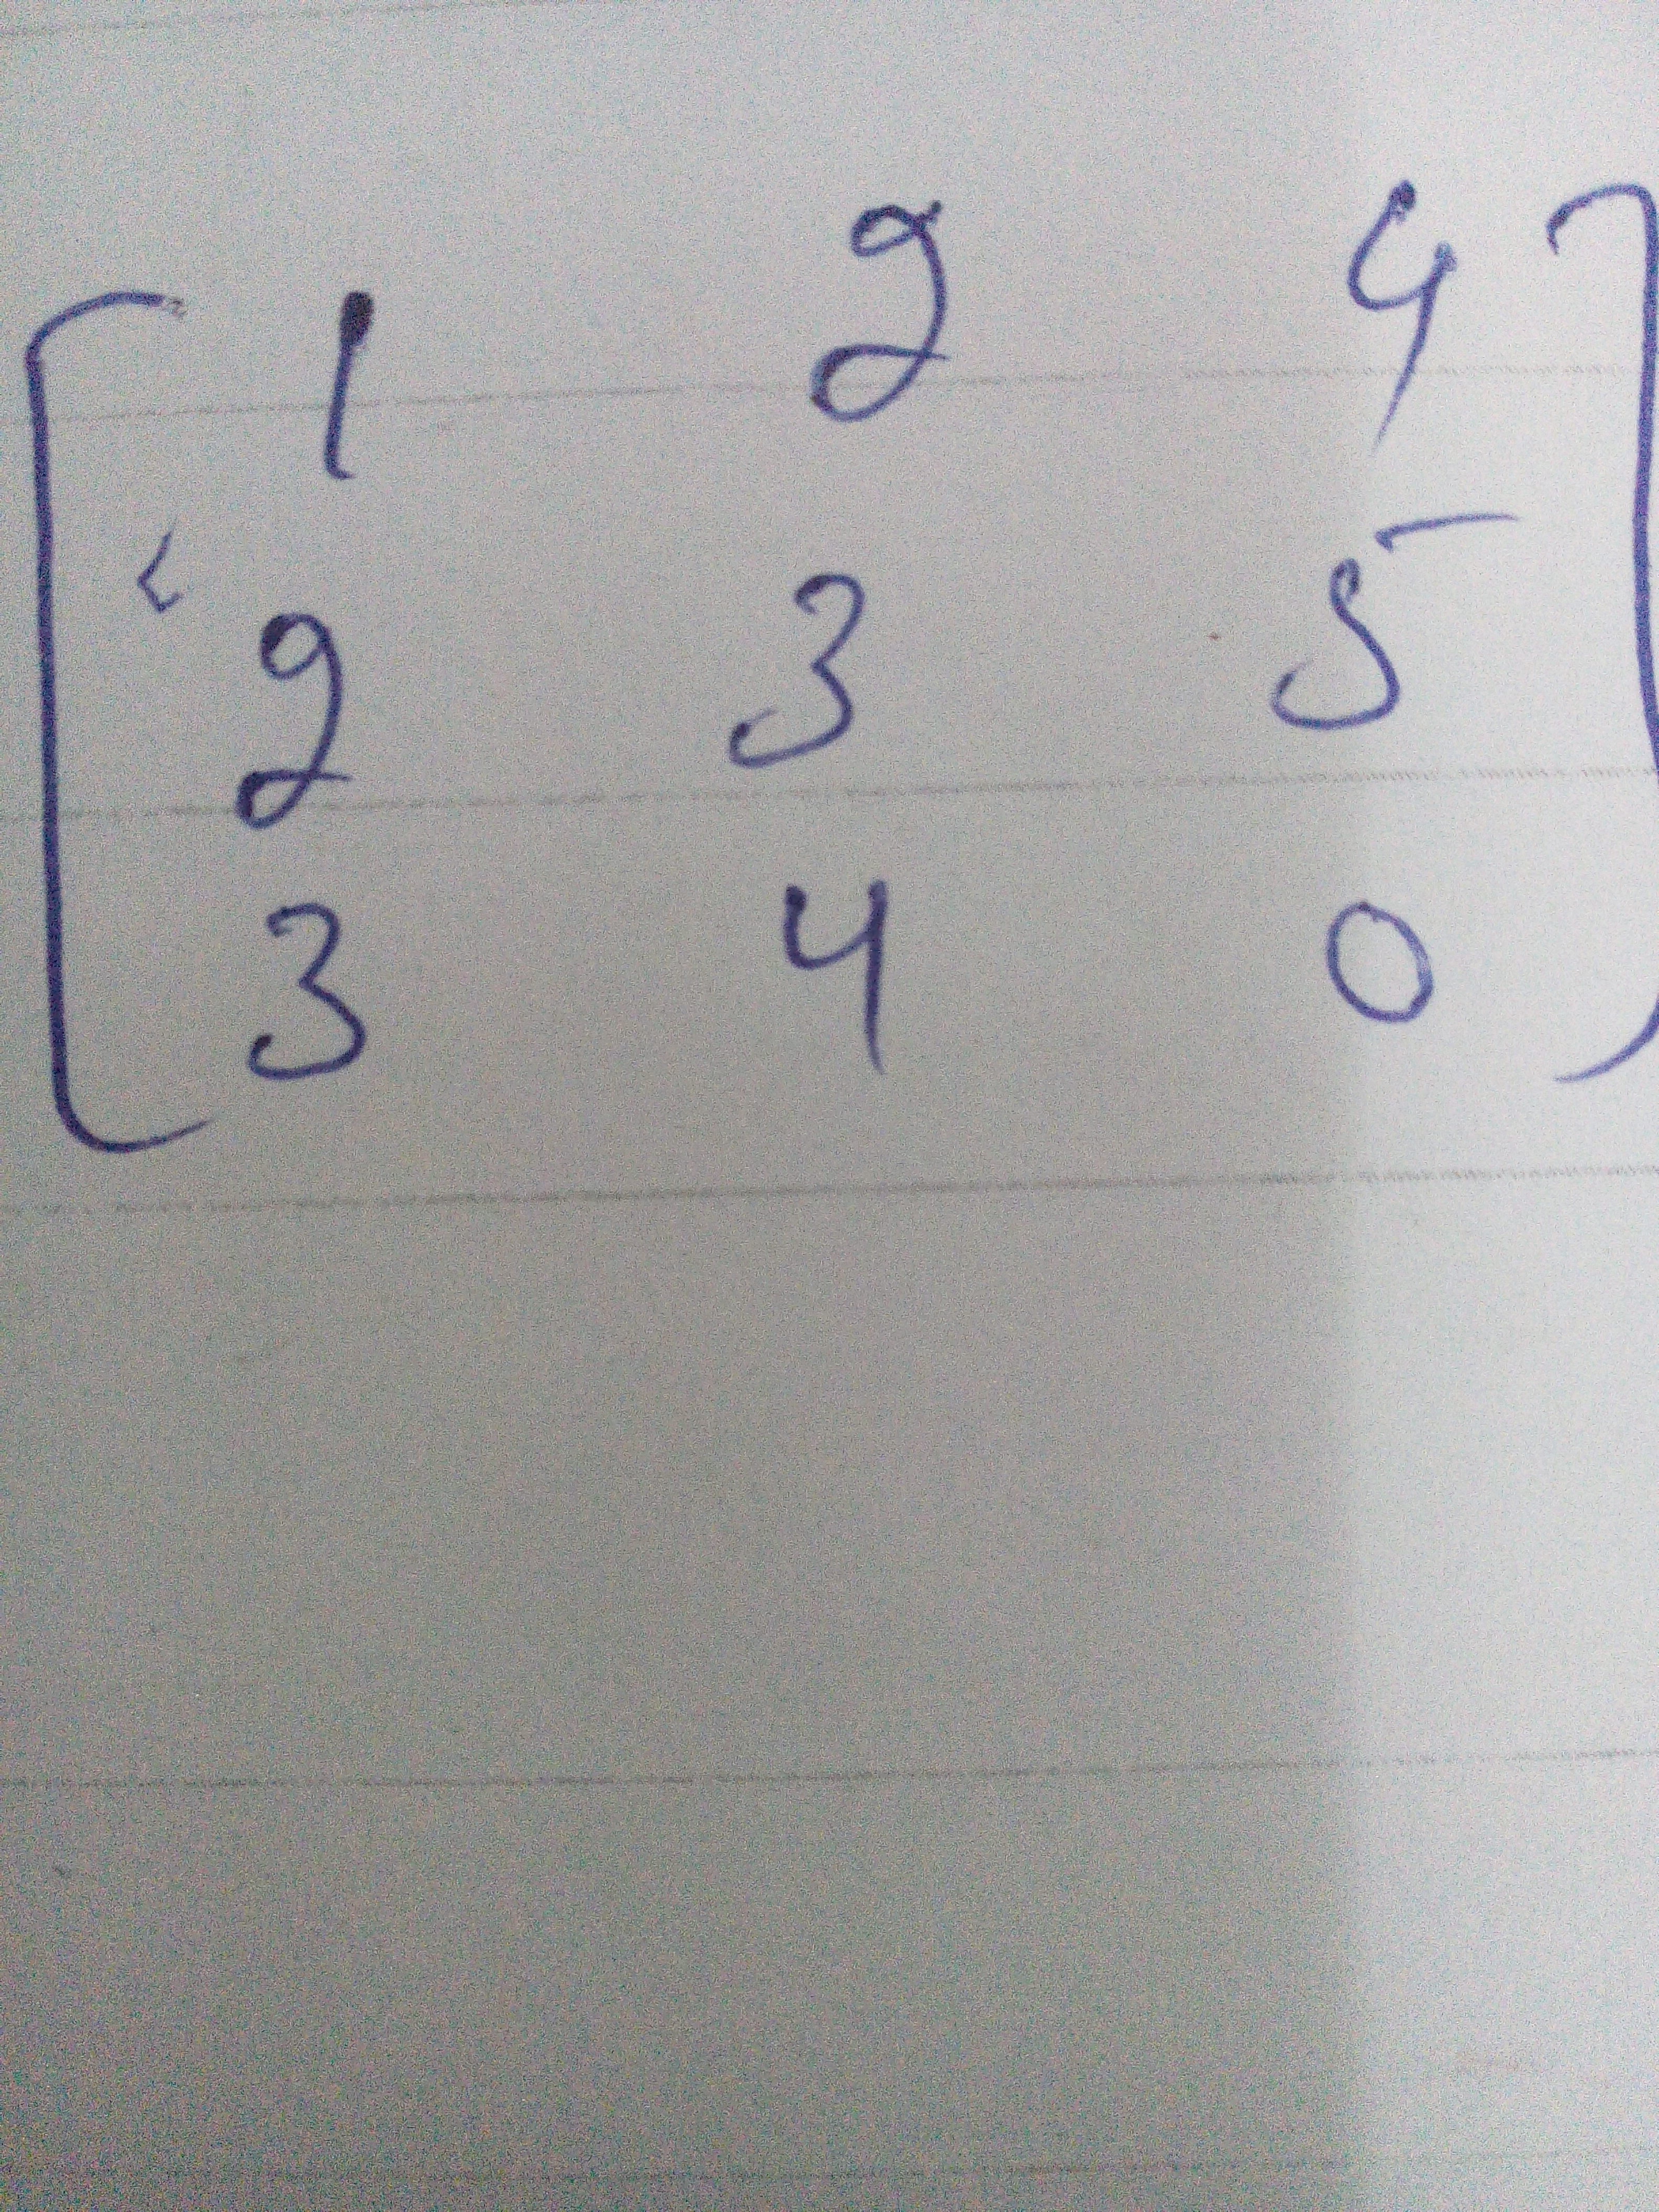 1 2 4
2 3 5
3 4 0